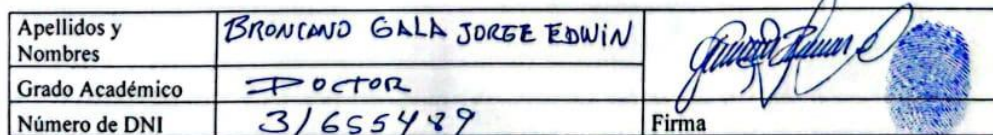 Apellidos y Nombres BRONCANO GALA JORGE EDWIN
Grado Académico DOCTOR
Número de DNI 31655489 Firma